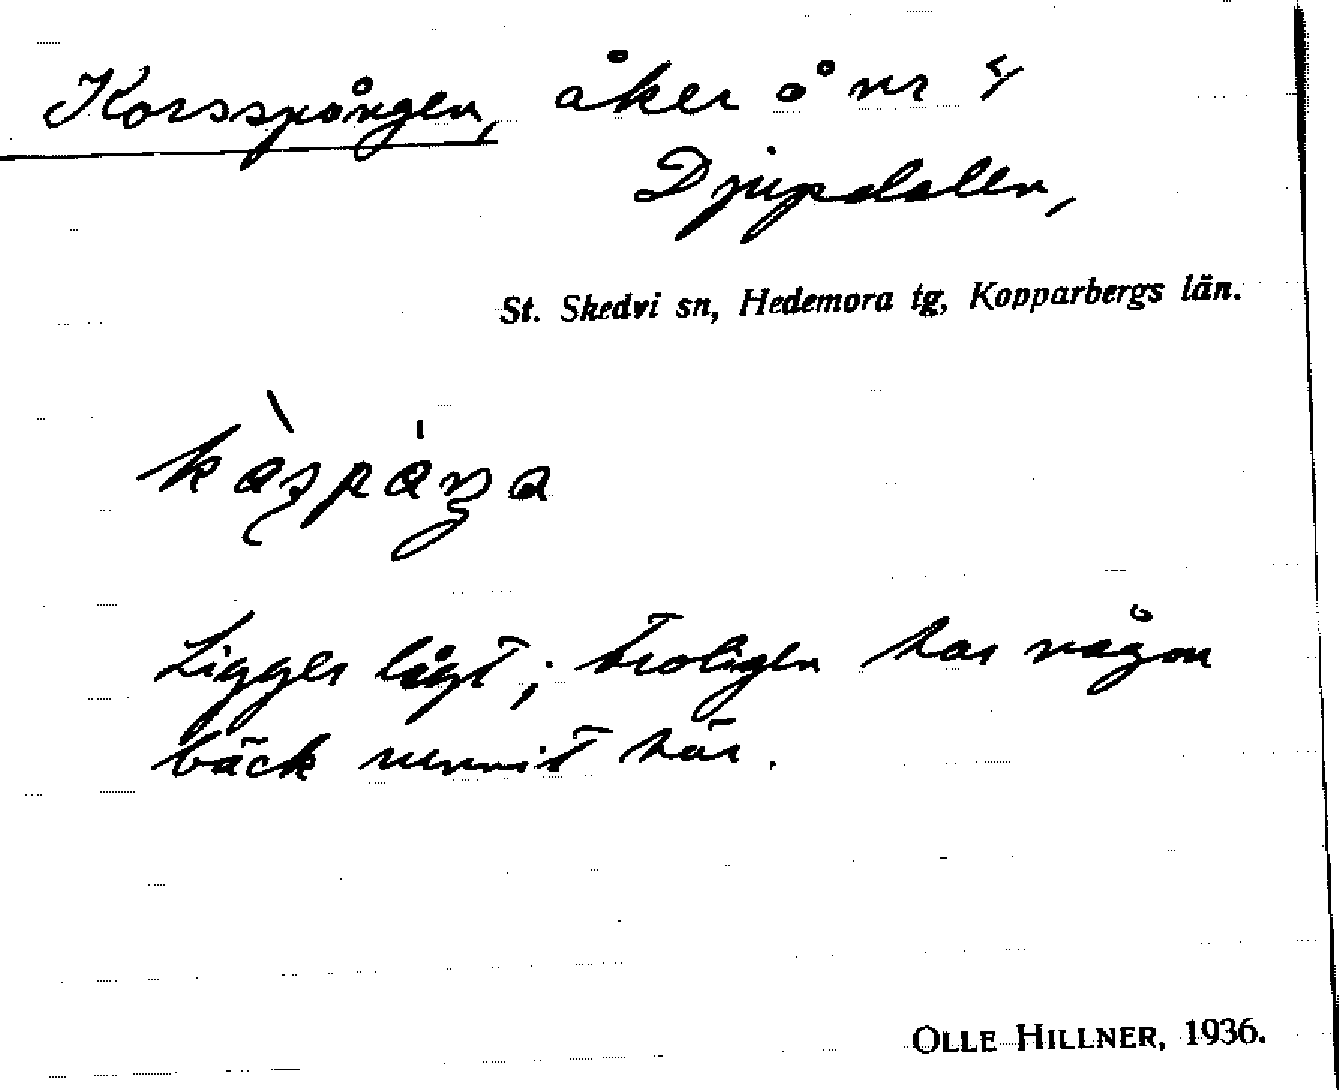 Korsspången, åker å nr 4
Djupdalen,
St. Skedvi sn, Hedemora tg, Kopparbergs län.
Ligger lågt; troligen har någon
bäck runnit här.
OLLE HILLNER, 1936.